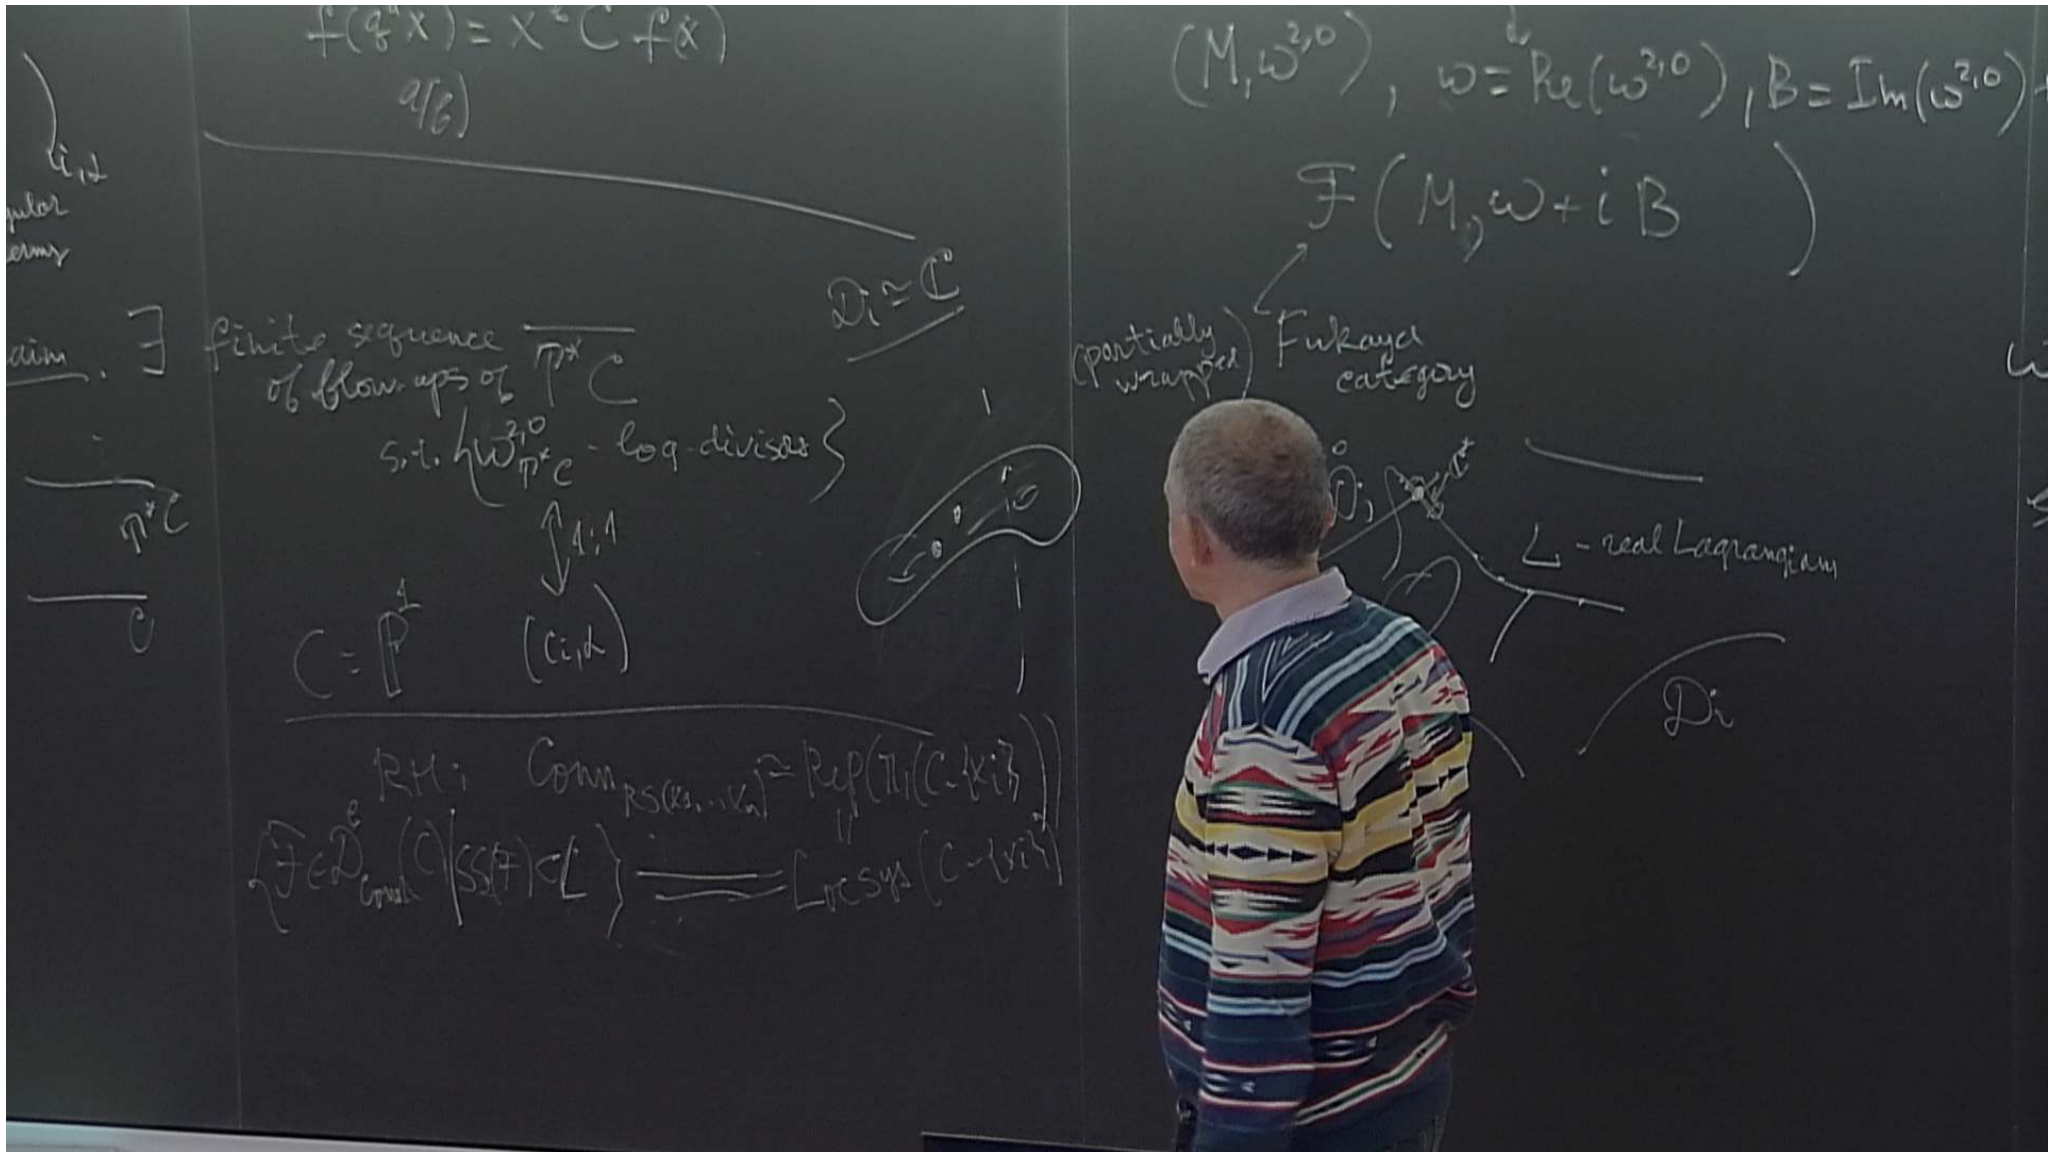 i,α
f(qⁿx) = x C f(x)
a/b)
D_i ≃ ℂ
∃ finite sequence
of blow-ups of \overline{T^*C}
s.t. {ω^{2,0}_{T^*C} - log-divisors}
↕ 1:1
C = P¹ (c_{i,α})
T^*C
C
RH: Conn_{RS(x_1,...,x_n)} ≃ Rep(π_1(C-{x_i}))
{F ∈ D^b_{const}(C) | SS(F) ⊂ L} = Locsys(C-{x_i})
(M, ω^{2,0}), ω = Re(ω^{2,0}), B = Im(ω^{2,0}) +
F(M, ω + iB)
(partially wrapped) Fukaya
category
C^*
L - real Lagrangian
D_i